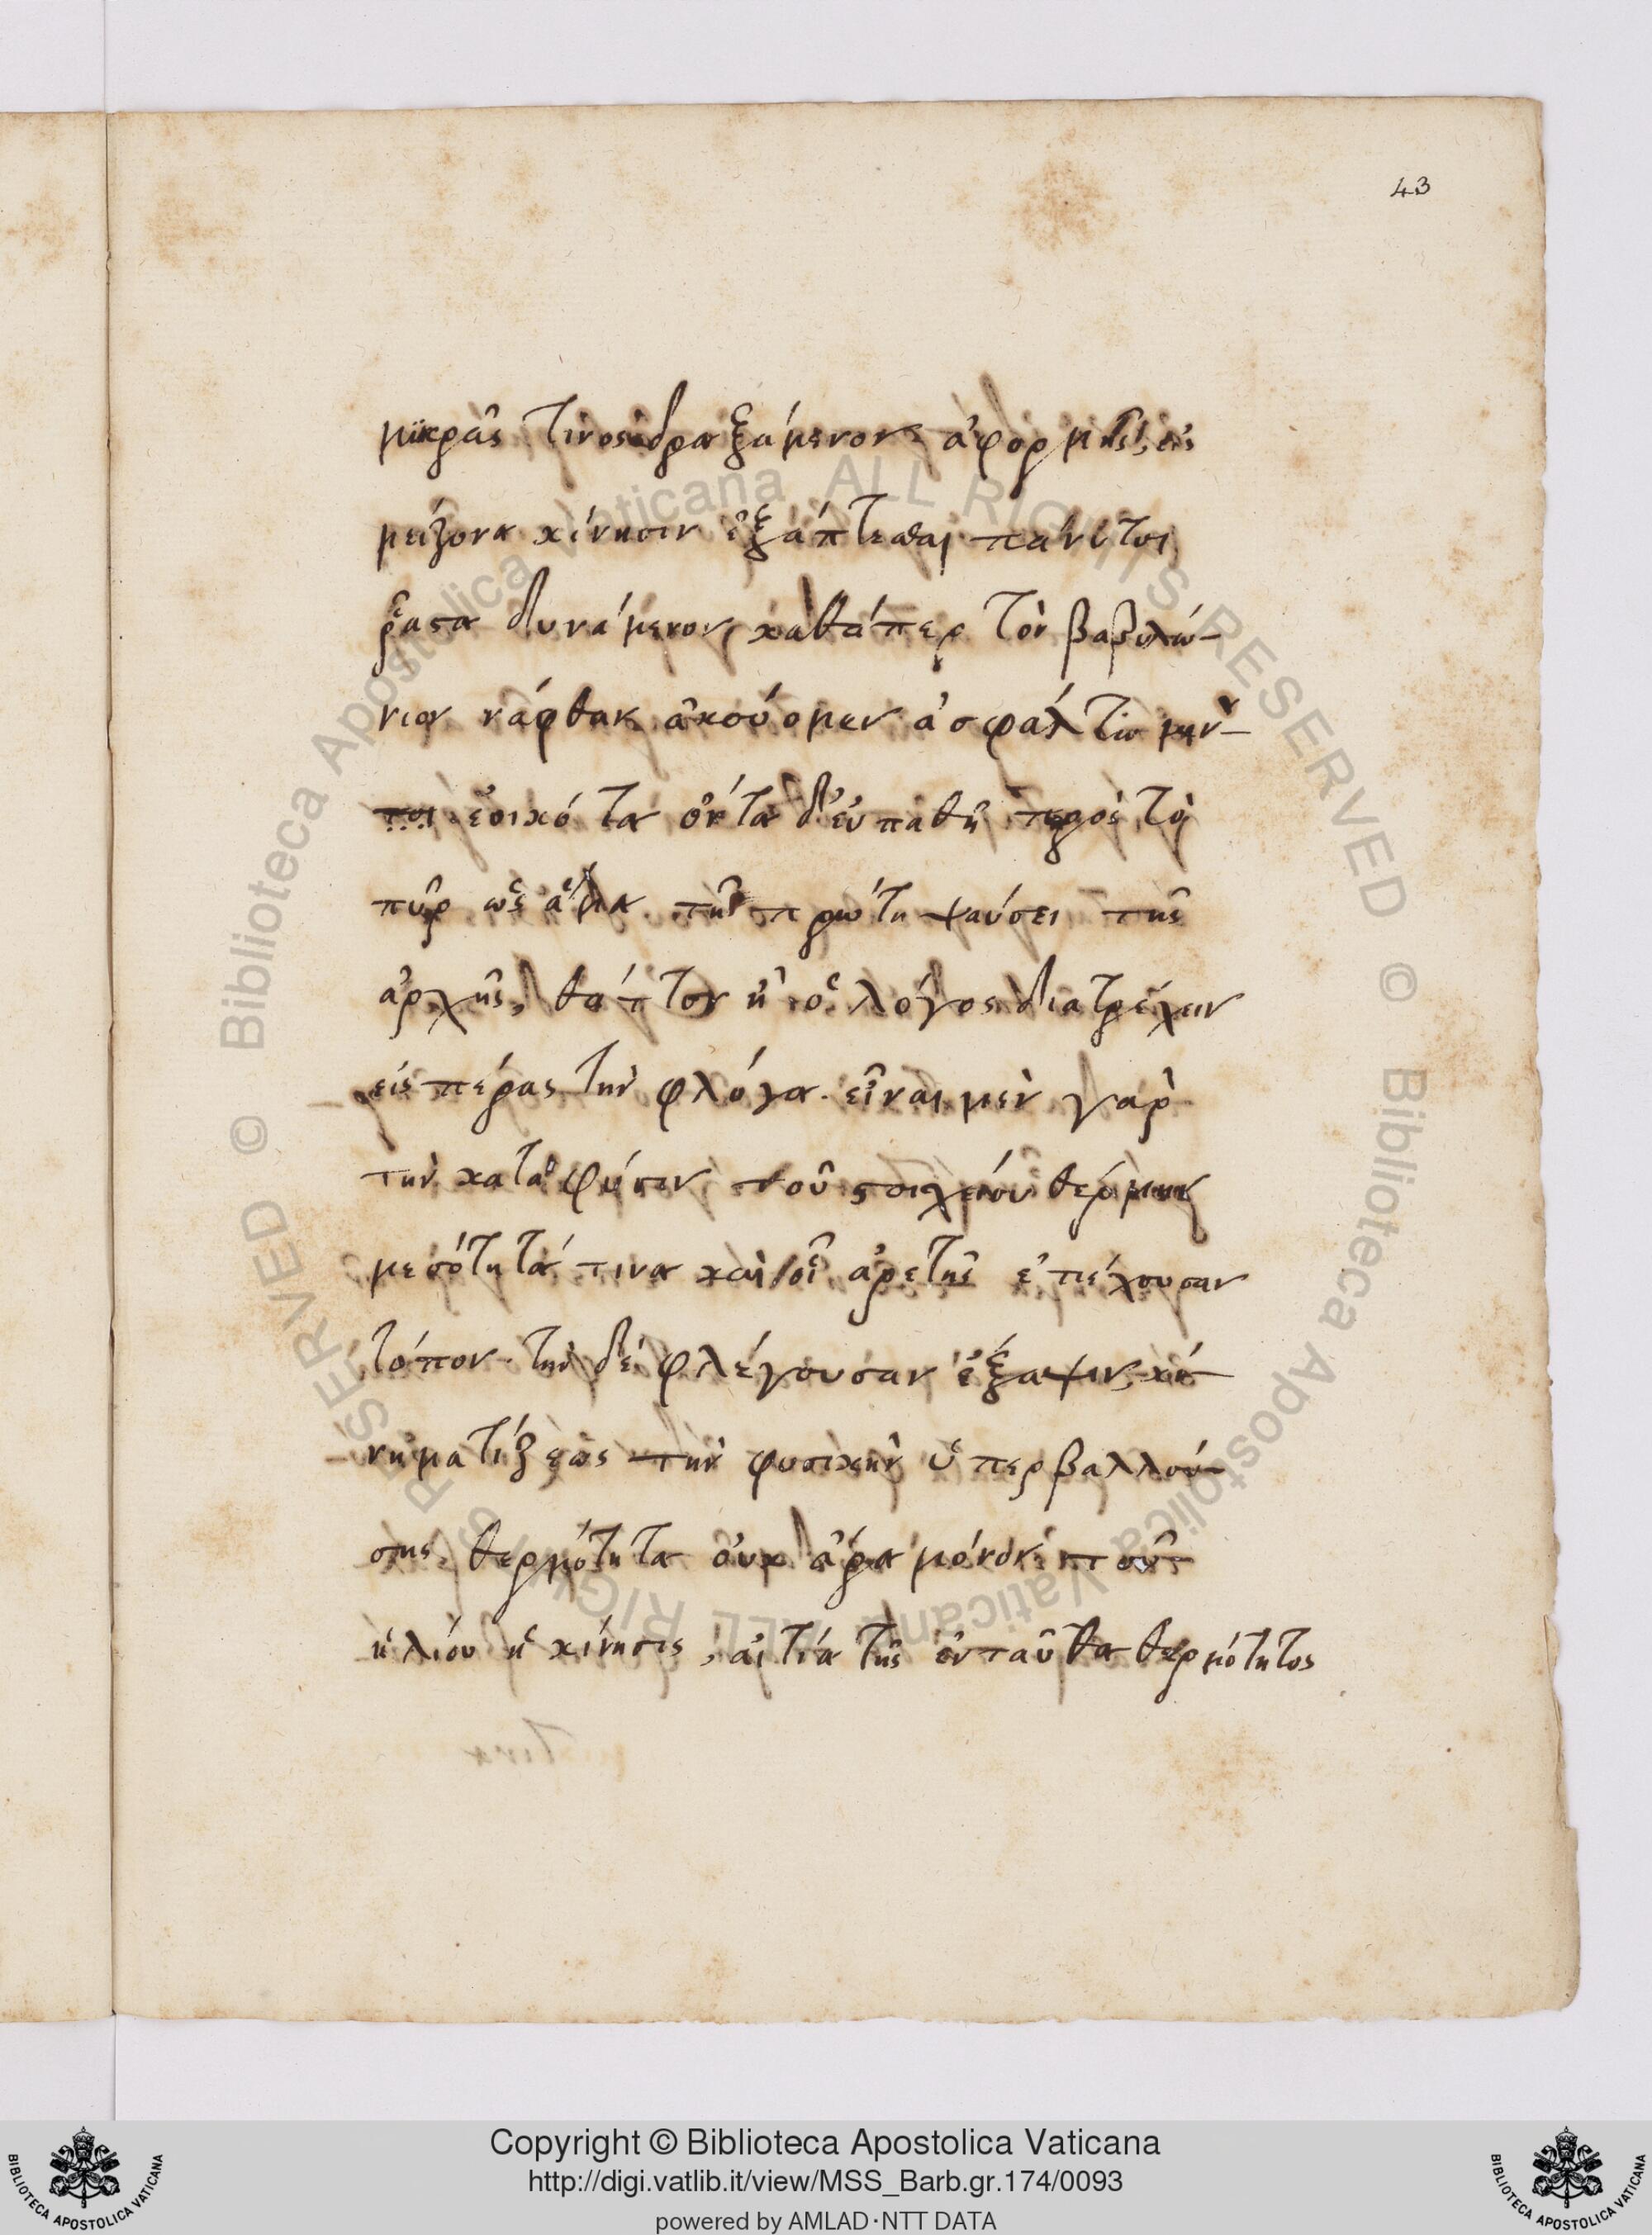 43
μικρᾶς τινος δραξάμενον ἀφορμῆς, εἰς
μείζονα κίνησιν ἐξάπτεσθαι παντὶ τοι
ῥᾷστα δυνάμενον, καθάπερ τὸν βαβυλώ-
νιον νάφθαν ἀκούομεν ἀσφάλτω μὴν-
τοι ἐοικότα ὄντα δ' ἐυπαθῆ πρὸς τὸ
πῦρ ὡς ἅμα τῆ πρώτη ψαύσει τῆς
ἀρχῆς, θάττον ἢ ὁ λόγος διατρέχειν
εἰς πέρας τὴν φλόγα. εἶναι μὲν γὰρ
τὴν κατὰ φύσιν τοῦ στοιχείου θέρμην
μεσότητά τινα καὶ οἷ ἀρετῆς ἐπέχουσαν
τόπον. τὴν δὲ φλέγουσαν ἔξαψιν, κι-
νηματίξεως τὴν φυσικὴν ὑπερβαλλού-
σης θερμότητα οὐκ ἄρα μόνον τοῦ
ἡλίου ἡ κίνησις, αἰτία τῆς ἐνταῦθα θερμότητος
© Biblioteca Apostolica Vaticana ALL RIGHTS RESERVED © Biblioteca Apostolica Vaticana ALL RIGHTS RESERVED
BIBLIOTECA APOSTOLICA VATICANA
Copyright © Biblioteca Apostolica Vaticana
http://digi.vatlib.it/view/MSS_Barb.gr.174/0093
powered by AMLAD·NTT DATA
BIBLIOTECA APOSTOLICA VATICANA